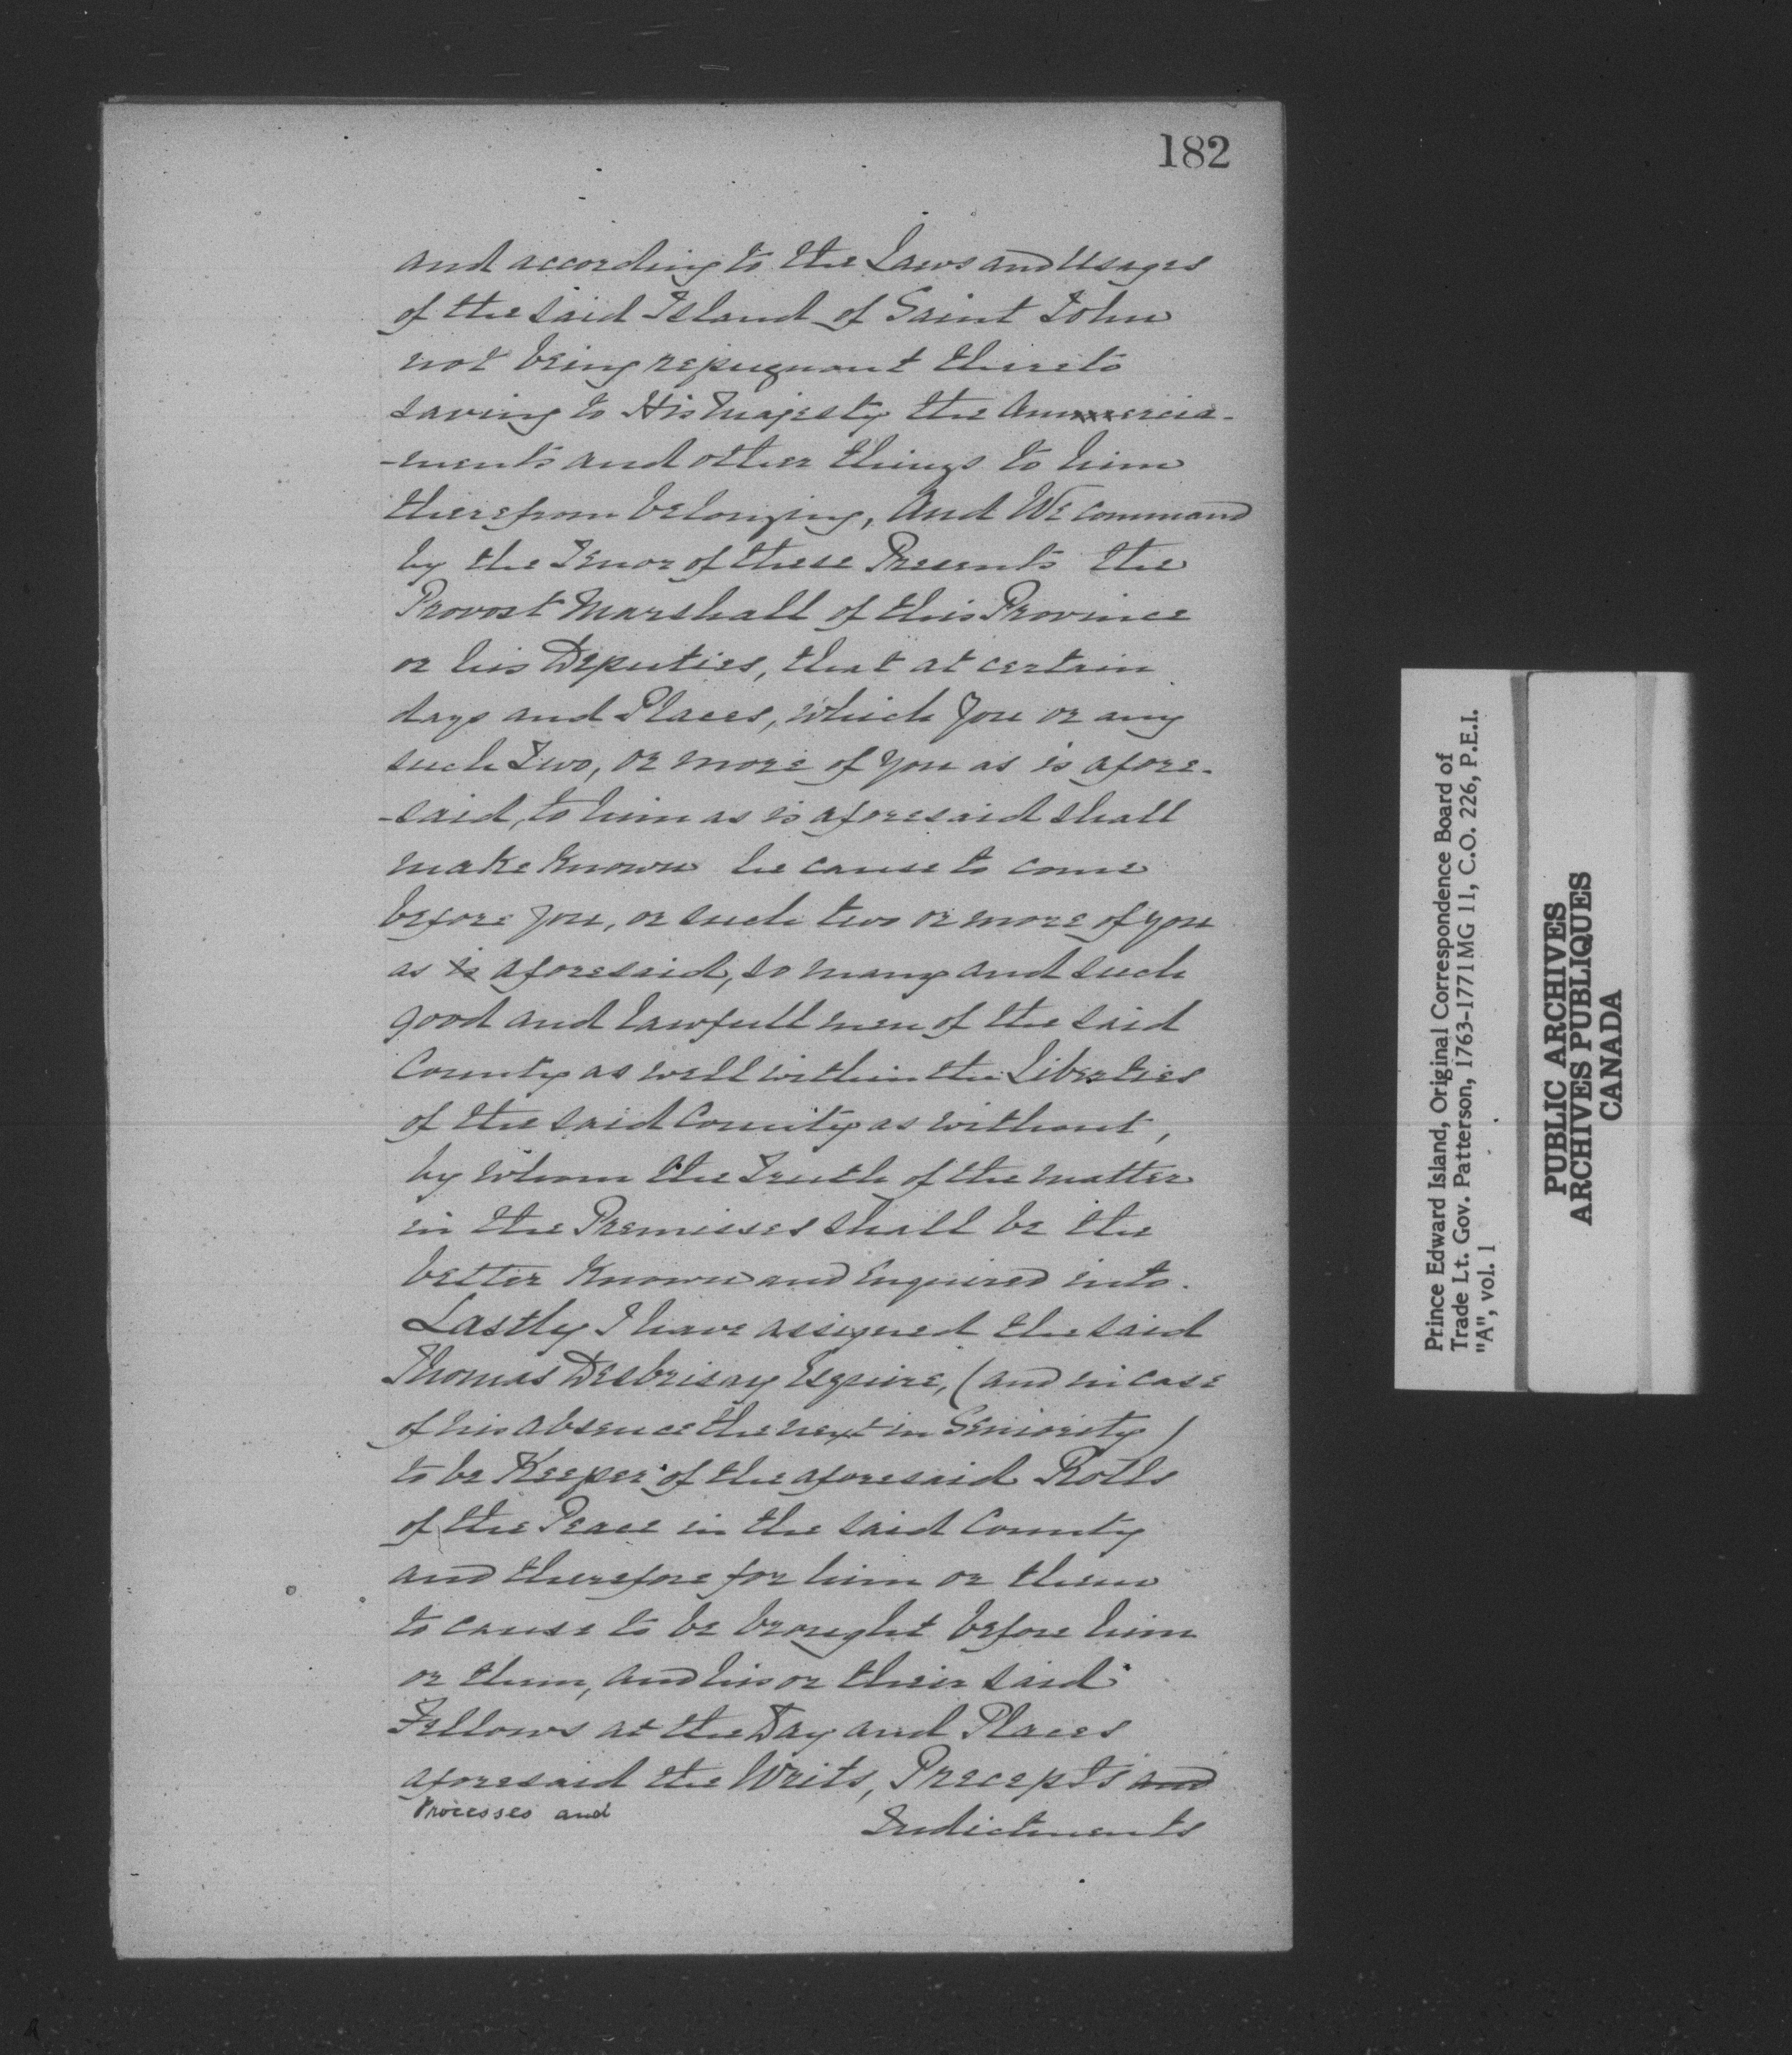 182
and according to the Laws and Usages
of the said Island of Saint John
not being repugnant thereto
saving to His Majesty the Amercia-
-ments and other things to him
therefrom belonging, And We command
by the Tenor of these Presents the
Provost Marshall of this Province
or his Deputies, that at certain
days and Places, which you or any
such Two, or more of you as is afore-
-said, to him as is aforesaid shall
make known he cause to come
before you, or such two or more of you
as is aforesaid, so many and such
good and lawfull men of the said
County as well within the Liberties
of the said County as without,
by whom the Truth of the matter
in the Premisses shall be the
better Known and Enquired into.
Lastly I have assigned the said
Thomas Desbrisay Esquire, (and in case
of his absence the next in Seniority)
to be Keeper of the aforesaid Rolls
of the Peace in the said County
and therefore for him or them
to cause to be brought before him
or them, and his or their said
Fellows at the Day and Places
aforesaid the Writs, Precepts and
Processes and
Indictments
Prince Edward Island, Original Correspondence Board of
Trade Lt. Gov. Patterson, 1763-1771 MG 11, C.O. 226, P.E.I.
"A", vol. 1
PUBLIC ARCHIVES
ARCHIVES PUBLIQUES
CANADA